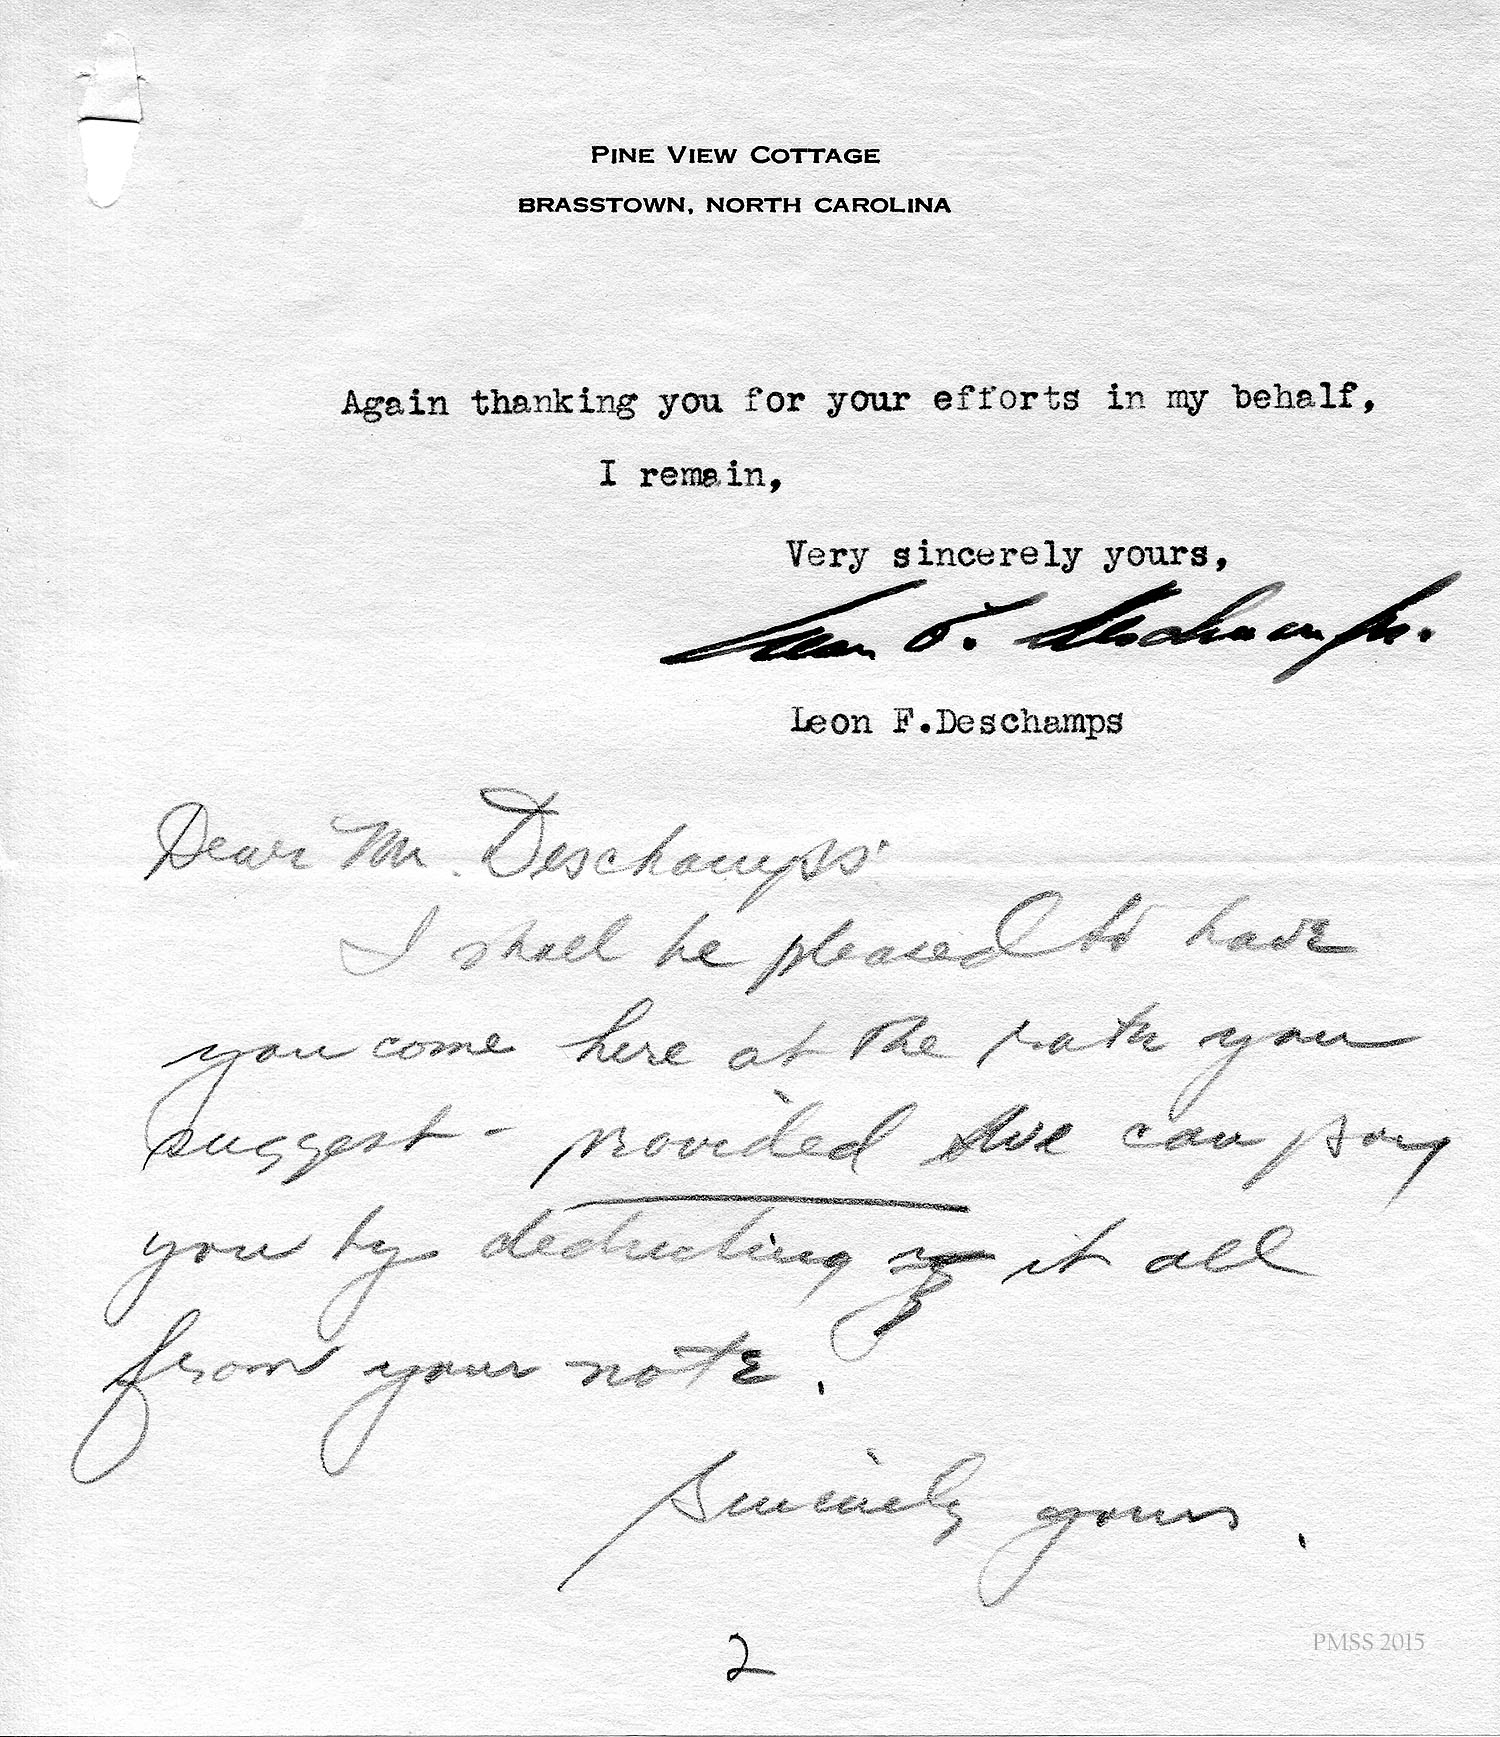 PINE VIEW COTTAGE
BRASSTOWN, NORTH CAROLINA
Again thanking you for your efforts in my behalf,
I remain,
Very sincerely yours,
Leon F. Deschamps.
Leon F.Deschamps
Dear Mr. Deschamps
I shall be pleased to have
you come here at the rate you
suggest - provided we can pay
you by deducting it all
from your note.
Sincerely yours.
2
PMSS 2015